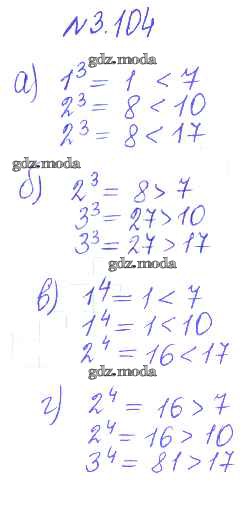 №3.104
gdz.moda
а) 1³ = 1 < 7
2³ = 8 < 10
2³ = 8 < 17
gdz.moda
б) 2³ = 8 > 7
3³ = 27 > 10
3³ = 27 > 17
gdz.moda
в) 1⁴ = 1 < 7
1⁴ = 1 < 10
2⁴ = 16 < 17
gdz.moda
г) 2⁴ = 16 > 7
2⁴ = 16 > 10
3⁴ = 81 > 17